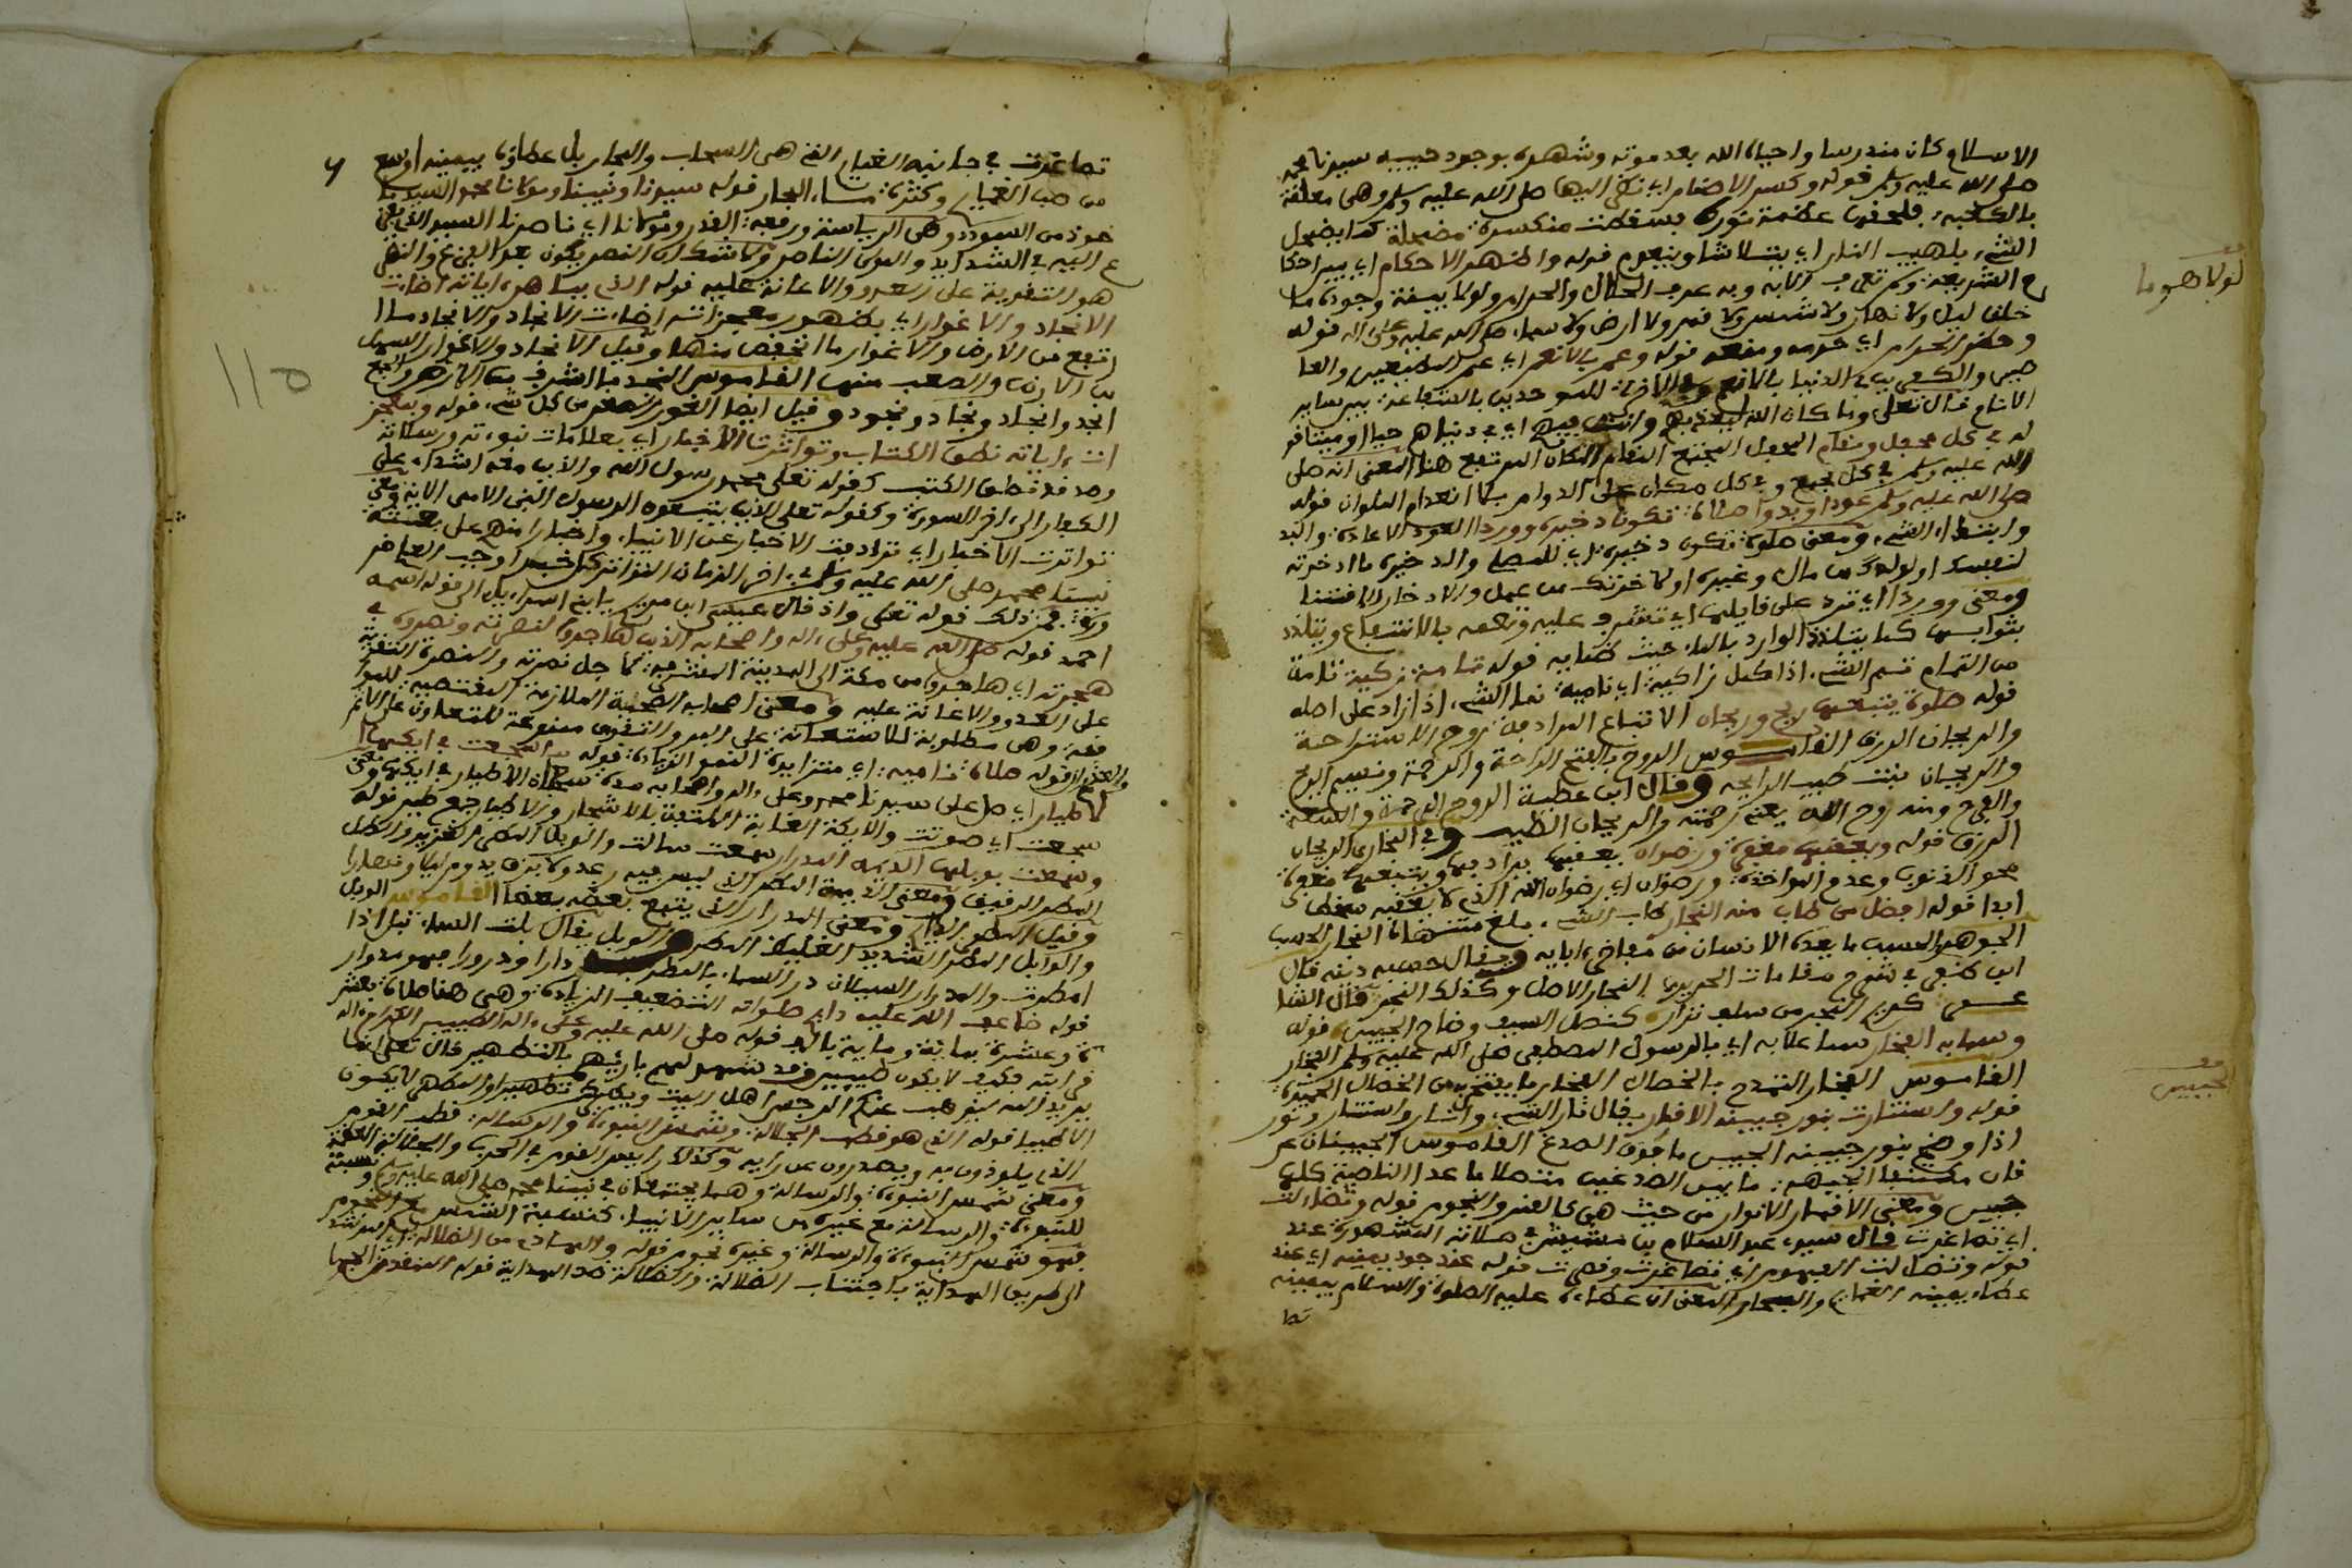 الاسلام كان مندرسا واحياه الله بعد موته وشهره بوجود حبيبه سيدنا محمد
صلى الله عليه وسلم قوله وكسر الاصنام اي نظر اليها صلى الله عليه وسلم وهي معلقة
بالكعبة فلحقها عظمة نوره فسقطت منكسرة مضمحلة كما يضمحل
الشيء بلهيب النار اي يتلاشا وينعدم قوله واظهر الاحكام اي بين احكا
م الشريعة وبه عرف الحلال والحرام ولولا وجوده ما
خلق ليل ولا نهار ولا شمس ولا قمر ولا ارض ولا سماء صلى الله عليه وعلى اله قوله
وحظر الحرام اي حرمه ومنعه قوله وعم بالانعام اي عم المطيعين والعا
صين والكفرين في الدنيا للموحدين بالشفاعة بين ساير
الانام قال تعلى وما كان الله ليعذبهم وانت فيهم اي في دنياهم
في كل محفل ومقام المحفل المجتمع المقام المكان المرتفع هذا المعنى انه صلى
الله عليه وسلم في كل مجمع وفي كل مكان على الدوام قوله
صلى الله عليه وسلم عودا وبدوا صلاة تكون ذخيرة ووردا العود الاعادة والبد
و ابتداء الشيء ومعنى صلوة تكون ذخيرة اي للمصلي والذخيرة ما ادخرته
لنفسك او لولدك من مال وغيره من عمل والادخار
ومعنى ووردا اي ترد على قايلها اي تشرف عليه وتعمه بالانتفاع ويتلذذ
بثوابها كما يتلذذ الوارد بالماء قوله تامة زكية تامة
من التمام تم الشيء اذا كمل زاكية اي نامية نما الشيء اذا زاد على اصله
قوله صلوة يتبعها روح وريحان الاتباع المراد من روح الاستراحة
والريحان الرزق القاموس الروح بالفتح الراحة والرحمة ونسيم الريح
والريحان نبت طيب الرايحة وقال ابن عطية الروح الرحمة والسعة
والفرج ومنه روح الله يعني رحمته والريحان الطيب وفي البخاري الريحان
الرزق قوله ويعقبها مغفرة ورضوان يعقبها يرادفها ويتبعها مغفرة
محو الذنوب وعدم المواخذة ورضوان اي رضوان الله الذي لا يعقبه سخط
ابدا قوله افضل من طاب منه النجار طاب الشيء بلغ منتهاه النجار الحسب
الجوهر الحسب ما يعده الانسان من مفاخر ءابايه ويقال حسبه دينه قال
ابن ظفر في شرح مقامات الحريري النجار الاصل وكذلك النجر قال الشا
عر كريم النجر من سلف نزار كنصل السيف وضاح الجبين قوله
وسما به الفخار سما علا به اي بالرسول المصطفى صلى الله عليه وسلم الفخار
القاموس الفخار التمدح بالخصال الفخار ما يفتخر من الخصال الحميدة
قوله واستنارت بنور جبينه الاقمار يقال نار الشيء وانار واستنار ونور
اذا وضح بنور جبينه الجبين ما فوق الصدغ القاموس الجبينان عر
فان مكتنفا الجبهة ما بين الصدغين متصلا ما عدا الناصية كلها
جبين ومعنى الاقمار الانوار من حيث هي كالقمر والنجوم قوله وتضاءلت
اي تصاغرت قال سيدي عبد السلام بن مشيش في صلاته المشهورة عند
قوله وتضاءلت الفهوم اي تصاغرت قوله عند جود يمينه اي عند
عطاء يمينه الغمام والبحار المعنى ان عطاءه عليه الصلوة والسلام بيمينه
تصا
لولا هو ما
الجبين
تصاغرت في جانبه الغمام التي هي السحاب والبحار بل عطاؤه بيمينه اوسع
من صب الغمام وكثرة ماء البحار قوله سيدنا ونبينا ومولانا محمد السيد ما
خوذ من السودد وهي الرياسة ورفعة القدر ومولانا اي ناصرنا السيد الذي يفز
ع اليه في الشدايد والمولى الناصر ولا شك ان النصر يكون بعد الفزع والنصر
هو التقوية على العدو والاعانة عليه قوله الذي بباهر ءاياته اضاءت
الانجاد والاغوار اي بظهور معجزاته اضاءت الانجاد والانجاد ما ا
رتفع من الارض والاغوار ما انخفض منها وقيل الانجاد والاغوار السهل
من الارض والصعب منها القاموس النجد ما اشرف من الارض والجمع
انجد وانجاد ونجاد ونجود وقيل ايضا الغور القعر من كل شيء قوله وبمعجز
ات ءاياته نطق الكتاب وتواترت الاخبار اي بعلامات نبوءته ورسالاته
وصدقه نطق الكتب كقوله تعلى محمد رسول الله والذين معه اشداء على
الكفار الى اخر السورة وكقوله تعلى الذين يتبعون الرسول النبي الامي الاية ومعنى
تواترت الاخبار اي ترادفت الاخبار عن الانبياء واخبارا منهم على بعثة
نبينا محمد صلى الله عليه وسلم في اخر الزمان
فمن ذلك قوله تعلى واذ قال عيسى ابن مريم يا بني اسراءيل الى قوله اسمه
احمد قوله صلى الله عليه وعلى ءاله واصحابه الذين هاجروا لنصرته ونصروه في
هجرته اي هاجروا من مكة الى المدينة المشرفة لاجل نصرته والنصرة التقوية
على العدو والاعانة عليه ومعنى اصحابه الصحبة الملازمة المقتضية للموا
فقة وهي مطلوبة للاستعانة على البر والتقوى ممنوعة للتعاون على الاثم
والعدوان قوله صلاة نامية اي متزايدة النمو الزيادة قوله ما سجعت في ايكها ا
لاطيار اي صل على سيدنا محمد وعلى ءاله واصحابه مدة سجع الاطيار في ايكها ومعنى
سجعت اي صوتت والايكة الغابة الملتفة بالاشجار والاطيار جمع طير قوله
وهمعت بوبلها الديمة المدرار همعت سالت والوبل المطر الغزير والطل
المطر الرقيق ومعنى الديمة المطر الذي ليس فيه رعد ولا برق يدوم ليلا ونهارا
وقيل المطر الدايم ومعنى المدرار الذي يتبع بعضه بعضا القاموس الوبل
والوابل المطر الشديد الغليظ القطر والوبل يقال وبلت السماء تبل اذا
امطرت والمدرار السيلان درت السماء بالمطر درا ودرورا فهو مدرار
قوله ضاعف الله عليه دايم صلواته التضعيف الزيادة وهي هنا صلاة بعشر
ة وعشرة بماية وماية بالف قوله صلى الله عليه وعلى ءاله الطيبين الكرام ءاله
قرابته فكيف لا يكون طيبين وقد شهد لهم بارئهم بالتطهير قال تعلى انما
يريد الله ليذهب عنكم الرجس اهل البيت ويطهركم تطهيرا والمطهر لا يكون
الا طيبا قوله الذي هو قطب الجلالة وشمس النبوءة والرسالة قطب القوم
الذي يلوذون به ويصدرون عن رايه وكذلك رايس القوم في الحرب والجلالة العظمة
ومعنى شمس النبوءة والرسالة وهما يجتمعان في نبينا محمد صلى الله عليه وسلم ونسبته
للنبوءة والرسالة مع غيره من ساير الانبياء كنسبة الشمس مع النجوم
فهو شمس النبوءة والرسالة وغيره نجوم قوله والهادي من الضلالة اي المرشد
الى طريق الهداية باجتناب الضلالة والضلالة ضد الهداية قوله المنقذ من الجها
110